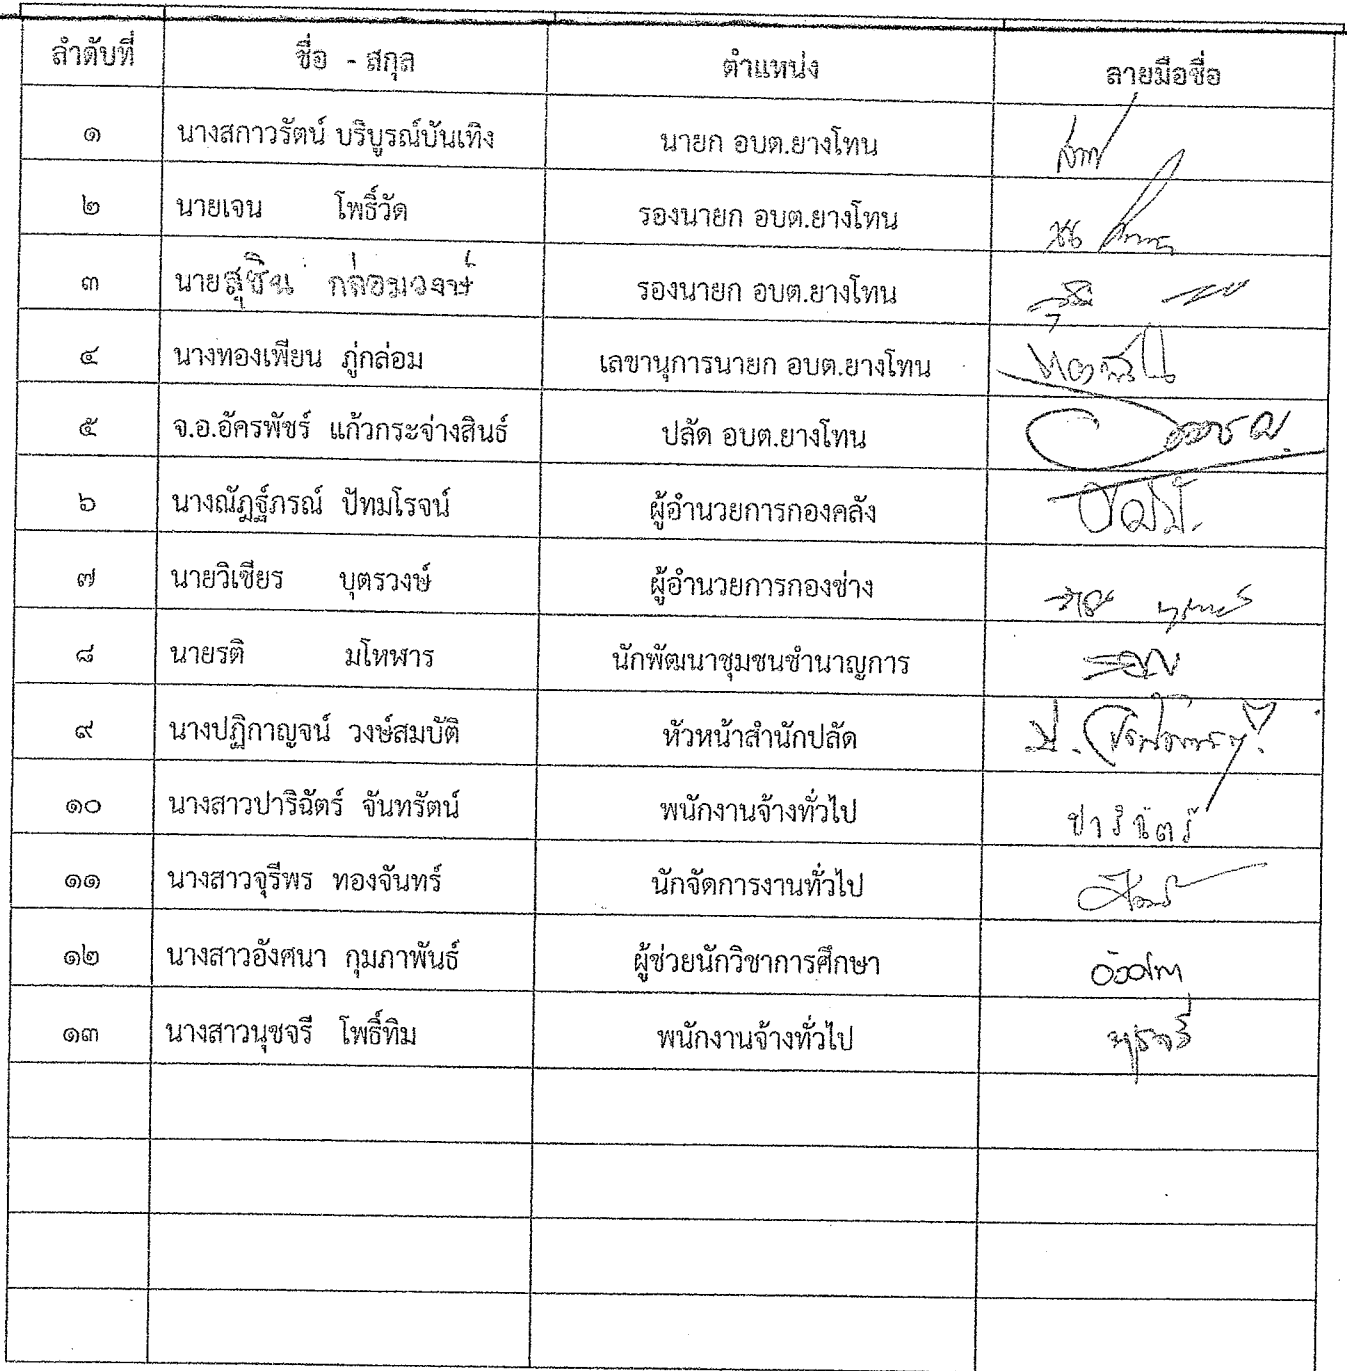 ลำดับที่ ชื่อ - สกุล ตำแหน่ง ลายมือชื่อ
๑ นางสกาวรัตน์ บริบูรณ์บันเทิง นายก อบต.ยางโทน
๒ นายเจน โพธิ์วัด รองนายก อบต.ยางโทน
๓ นายสุชิน กล่อมวงษ์ รองนายก อบต.ยางโทน
๔ นางทองเพียน ภู่กล่อม เลขานุการนายก อบต.ยางโทน
๕ จ.อ.อัครพัชร์ แก้วกระจ่างสินธ์ ปลัด อบต.ยางโทน
๖ นางณัฎฐ์ภรณ์ ปัทมโรจน์ ผู้อำนวยการกองคลัง
๗ นายวิเชียร บุตรวงษ์ ผู้อำนวยการกองช่าง
๘ นายรติ มโหฬาร นักพัฒนาชุมชนชำนาญการ
๙ นางปฏิกาญจน์ วงษ์สมบัติ หัวหน้าสำนักปลัด
๑๐ นางสาวปาริฉัตร์ จันทรัตน์ พนักงานจ้างทั่วไป ปาริฉัตร์
๑๑ นางสาวจุรีพร ทองจันทร์ นักจัดการงานทั่วไป
๑๒ นางสาวอังศนา กุมภาพันธ์ ผู้ช่วยนักวิชาการศึกษา อังศนา
๑๓ นางสาวนุชจรี โพธิ์ทิม พนักงานจ้างทั่วไป นุชจรี